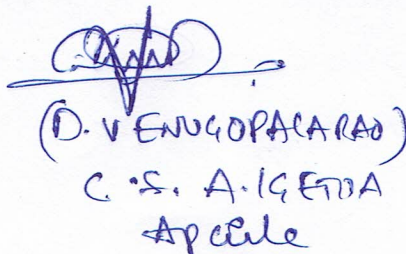 (D. VENUGOPALARAO)
C.S. A.IGETOA
AP Circle